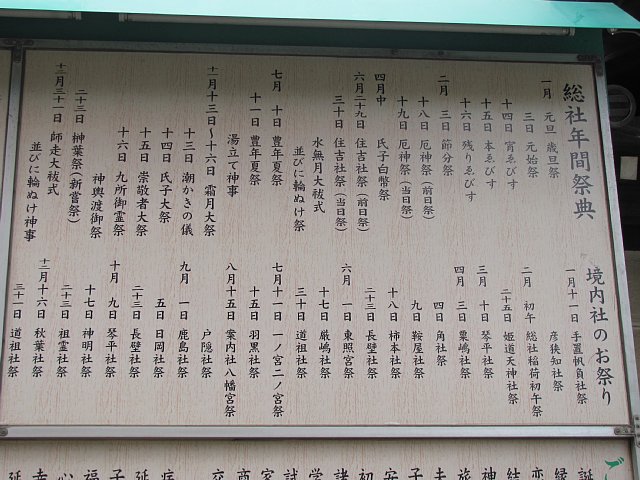 総社年間祭典
一月 元旦 歳旦祭
三日 元始祭
十四日 宵ゑびす
十五日 本ゑびす
十六日 残りゑびす
二月 三日 節分祭
十八日 厄神祭(前日祭)
十九日 厄神祭(当日祭)
四月中 氏子白幣祭
六月二十九日 住吉社祭(前日祭)
三十日 住吉社祭(当日祭)
水無月大祓式
並びに輪ぬけ祭
七月 十日 豊年夏祭
十一日 豊年夏祭
湯立て神事
十一月十三日～十六日 霜月大祭
十三日 潮かきの儀
十四日 氏子大祭
十五日 崇敬者大祭
十六日 九所御霊祭
神輿渡御祭
二十三日 榊葉祭(新嘗祭)
十二月三十一日 師走大祓式
並びに輪ぬけ神事
境内社のお祭り
一月十一日 手置帆負社祭
彦狭知社祭
二月 初午 総社稲荷初午祭
二十五日 姫道天神社祭
三月 十日 琴平社祭
四月 三日 粟嶋社祭
四日 角社祭
九日 鞍屋社祭
十八日 柿本社祭
二十三日 長壁社祭
六月 一日 東照宮祭
十七日 厳嶋社祭
三十日 道祖社祭
七月十一日 一ノ宮二ノ宮祭
十五日 羽黒社祭
八月十五日 案内社八幡宮祭
五日 日岡社祭
九月 一日 鹿島社祭
戸隠社祭
二十三日 長壁社祭
十月 九日 琴平社祭
十七日 神明社祭
二十三日 祖霊社祭
十二月十六日 秋葉社祭
三十一日 道祖社祭